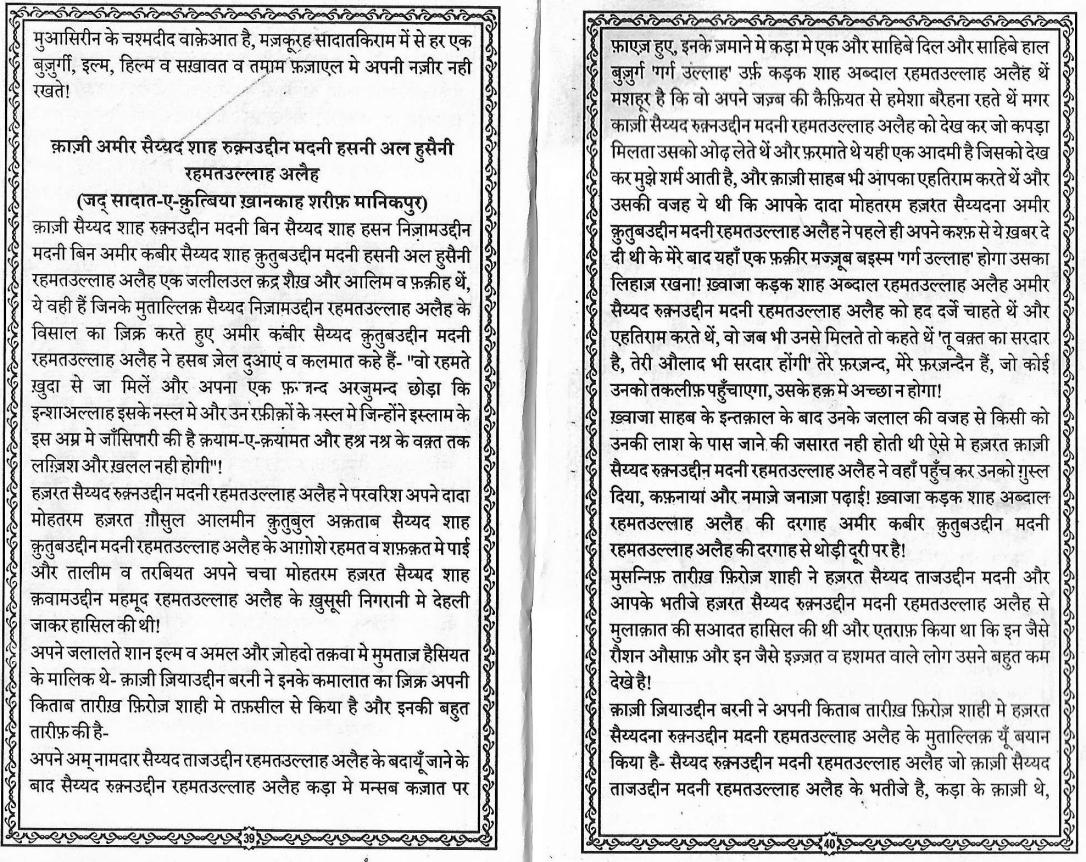 मुआसिरीन के चश्मदीद वाक़ेआत है, मज़कूरह सादातकिराम में से हर एक
बुज़ुर्गी, इल्म, हिल्म व सख़ावत व तमाम फ़ज़ाएल मे अपनी नज़ीर नही
रखते!
क़ाज़ी अमीर सैय्यद शाह रुक़्नउद्दीन मदनी हसनी अल हुसैनी
रहमतउल्लाह अलैह
(जद् सादात-ए-क़ुत्बिया ख़ानकाह शरीफ़ मानिकपुर)
क़ाज़ी सैय्यद शाह रुक़्नउद्दीन मदनी बिन सैय्यद शाह हसन निज़ामउद्दीन
मदनी बिन अमीर कबीर सैय्यद शाह क़ुतुबउद्दीन मदनी हसनी अल हुसैनी
रहमतउल्लाह अलैह एक जलीलउल क़द्र शैख़ और आलिम व फ़क़ीह थें,
ये वही हैं जिनके मुताल्लिक़ सैय्यद निज़ामउद्दीन रहमतउल्लाह अलैह के
विसाल का ज़िक्र करते हुए अमीर कबीर सैय्यद क़ुतुबउद्दीन मदनी
रहमतउल्लाह अलैह ने हसब ज़ेल दुआएं व कलमात कहे हैं- "वो रहमते
ख़ुदा से जा मिलें और अपना एक अरजुमन्द छोड़ा कि
इन्शाअल्लाह इसके नस्ल मे और उन रफ़ीक़ों के नस्ल मे जिन्होंने इस्लाम के
इस अम्र मे जाँसिपारी की है क़याम-ए-क़यामत और हश्र नश्र के वक़्त तक
लग़्ज़िश और ख़लल नही होगी"!
हज़रत सैय्यद रुक़्नउद्दीन मदनी रहमतउल्लाह अलैह ने परवरिश अपने दादा
मोहतरम हज़रत ग़ौसुल आलमीन क़ुतुबुल अक़ताब सैय्यद शाह
क़ुतुबउद्दीन मदनी रहमतउल्लाह अलैह के आग़ोशे रहमत व शफ़क़त मे पाई
और तालीम व तरबियत अपने चचा मोहतरम हज़रत सैय्यद शाह
क़वामउद्दीन महमूद रहमतउल्लाह अलैह के ख़ुसूसी निगरानी मे देहली
जाकर हासिल की थी!
अपने जलालते शान इल्म व अमल और ज़ोहदो तक़वा मे मुमताज़ हैसियत
के मालिक थे- क़ाज़ी ज़ियाउद्दीन बरनी ने इनके कमालात का ज़िक्र अपनी
किताब तारीख़ फ़िरोज़ शाही मे तफ़सील से किया है और इनकी बहुत
तारीफ़ की है-
अपने अम् नामदार सैय्यद ताजउद्दीन रहमतउल्लाह अलैह के बदायूँ जाने के
बाद सैय्यद रुक़्नउद्दीन रहमतउल्लाह अलैह कड़ा मे मन्सब कज़ात पर
39
फ़ाएज़ हुए, इनके ज़माने मे कड़ा मे एक और साहिबे दिल और साहिबे हाल
बुज़ुर्ग 'गर्ग उल्लाह' उर्फ़ कड़क शाह अब्दाल रहमतउल्लाह अलैह थें
मशहूर है कि वो अपने जज़्ब की कैफ़ियत से हमेशा बरैहना रहते थें मगर
काज़ी सैय्यद रुक़्नउद्दीन मदनी रहमतउल्लाह अलैह को देख कर जो कपड़ा
मिलता उसको ओढ़ लेते थें और फ़रमाते थे यही एक आदमी है जिसको देख
कर मुझे शर्म आती है, और क़ाज़ी साहब भी आपका एहतिराम करते थें और
उसकी वजह ये थी कि आपके दादा मोहतरम हज़रत सैय्यदना अमीर
क़ुतुबउद्दीन मदनी रहमतउल्लाह अलैह ने पहले ही अपने कश्फ़ से ये ख़बर दे
दी थी के मेरे बाद यहाँ एक फ़क़ीर मज्ज़ूब बइस्म 'गर्ग उल्लाह' होगा उसका
लिहाज़ रखना! ख़्वाजा कड़क शाह अब्दाल रहमतउल्लाह अलैह अमीर
सैय्यद रुक़्नउद्दीन मदनी रहमतउल्लाह अलैह को हद दर्जे चाहते थें और
एहतिराम करते थें, वो जब भी उनसे मिलते तो कहते थें 'तू वक़्त का सरदार
है, तेरी औलाद भी सरदार होंगी' तेरे फ़रज़न्द, मेरे फ़रज़न्दैन हैं, जो कोई
उनको तकलीफ़ पहुँचाएगा, उसके हक़ मे अच्छा न होगा!
ख़्वाजा साहब के इन्तक़ाल के बाद उनके जलाल की वजह से किसी को
उनकी लाश के पास जाने की जसारत नही होती थी ऐसे मे हज़रत क़ाज़ी
सैय्यद रुक़्नउद्दीन मदनी रहमतउल्लाह अलैह ने वहाँ पहुँच कर उनको ग़ुस्ल
दिया, कफ़नायां और नमाज़े जनाज़ा पढ़ाई! ख़्वाजा कड़क शाह अब्दाल
रहमतउल्लाह अलैह की दरगाह अमीर कबीर क़ुतुबउद्दीन मदनी
रहमतउल्लाह अलैह की दरगाह से थोड़ी दूरी पर है!
मुसन्निफ़ तारीख़ फ़िरोज़ शाही ने हज़रत सैय्यद ताजउद्दीन मदनी और
आपके भतीजे हज़रत सैय्यद रुक़्नउद्दीन मदनी रहमतउल्लाह अलैह से
मुलाक़ात की सआदत हासिल की थी और एतराफ़ किया था कि इन जैसे
रौशन औसाफ़ और इन जैसे इज़्ज़त व हशमत वाले लोग उसने बहुत कम
देखे है!
क़ाज़ी ज़ियाउद्दीन बरनी ने अपनी किताब तारीख़ फ़िरोज़ शाही मे हज़रत
सैय्यदना रुक़्नउद्दीन मदनी रहमतउल्लाह अलैह के मुताल्लिक़ यूँ बयान
किया है- सैय्यद रुक़्नउद्दीन मदनी रहमतउल्लाह अलैह जो क़ाज़ी सैय्यद
ताजउद्दीन मदनी रहमतउल्लाह अलैह के भतीजे है, कड़ा के क़ाज़ी थे,
40